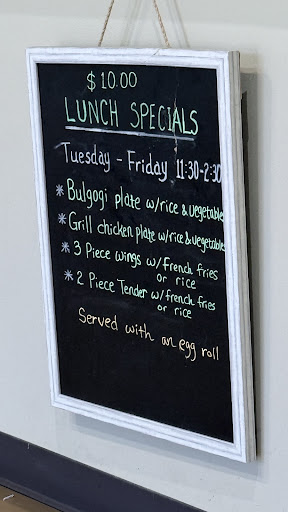 $10.00
LUNCH SPECIALS
Tuesday - Friday 11:30-2:30
* Bulgogi plate w/rice & vegetable
* Grill chicken plate w/rice & vegetables
* 3 Piece wings w/french fries
or rice
* 2 Piece Tender w/french fries
or rice
Served with an egg roll